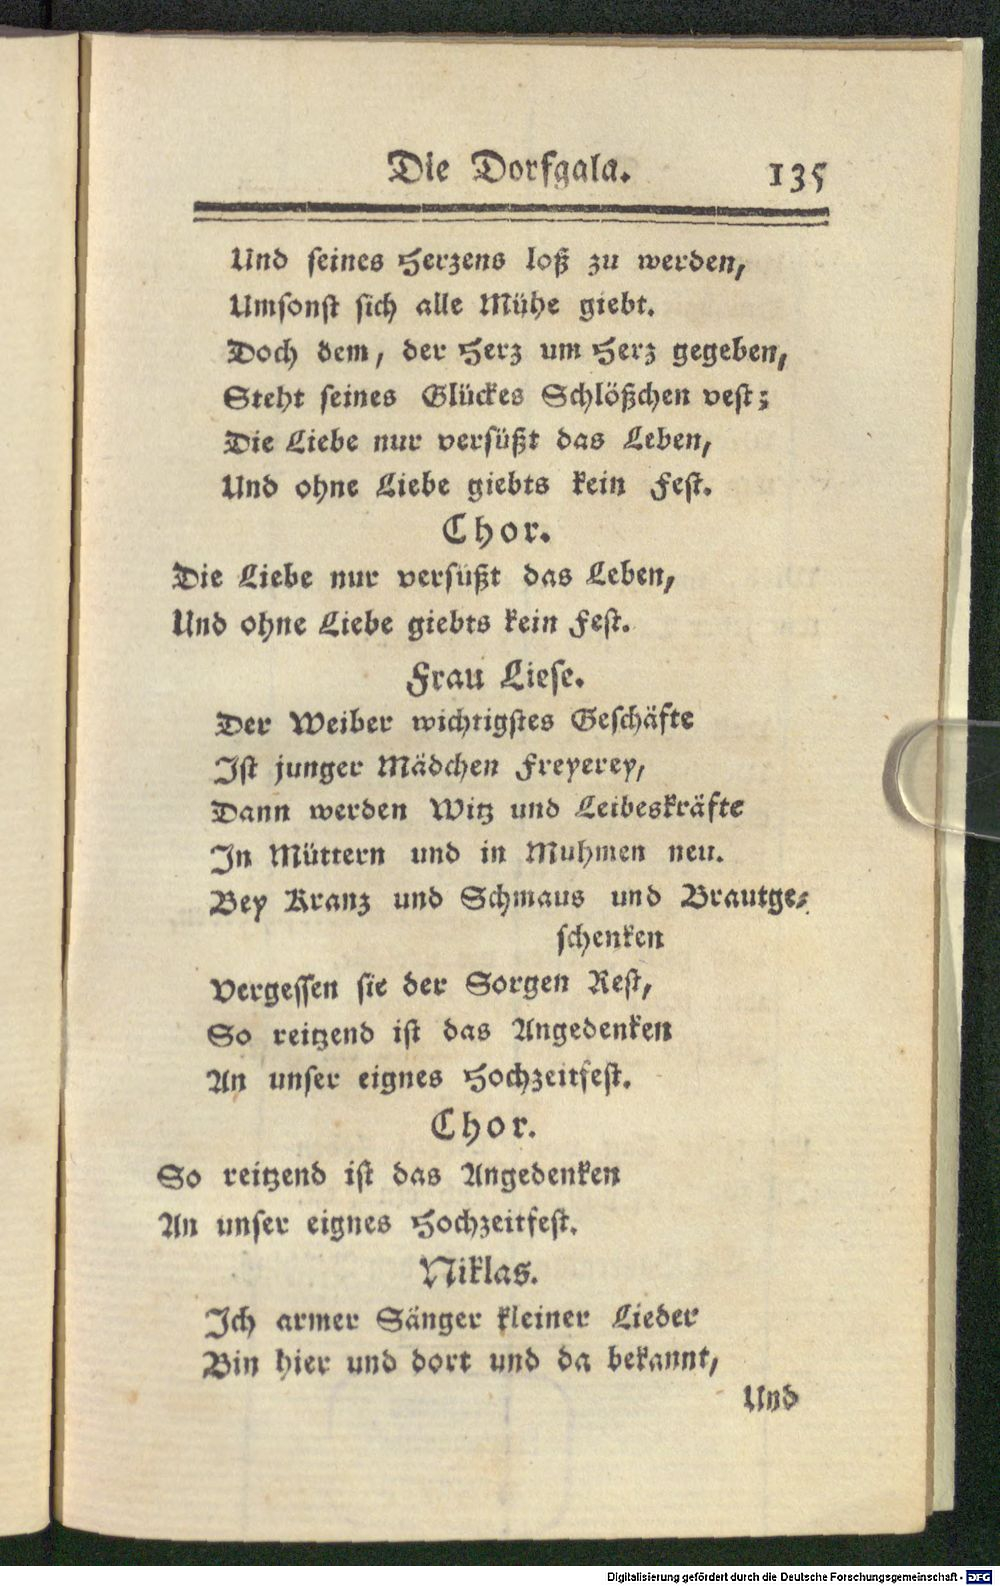 Die Dorfgala. 135
Und seines Herzens loß zu werden,
Umsonst sich alle Mühe giebt.
Doch dem, der Herz um Herz gegeben,
Steht seines Glückes Schlößchen vest;
Die Liebe nur versüßt das Leben,
Und ohne Liebe giebts kein Fest.
Chor.
Die Liebe nur versüßt das Leben,
Und ohne Liebe giebts kein Fest.
Frau Liese.
Der Weiber wichtigstes Geschäfte
Ist junger Mädchen Freyerey,
Dann werden Witz und Leibeskräfte
In Müttern und in Muhmen neu.
Bey Kranz und Schmaus und Brautge-
schenken
Vergessen sie der Sorgen Rest,
So reitzend ist das Angedenken
An unser eignes Hochzeitfest.
Chor.
So reitzend ist das Angedenken
An unser eignes Hochzeitfest.
Niklas.
Ich armer Sänger kleiner Lieder
Bin hier und dort und da bekannt,
Und
Digitalisierung gefördert durch die Deutsche Forschungsgemeinschaft - DFG